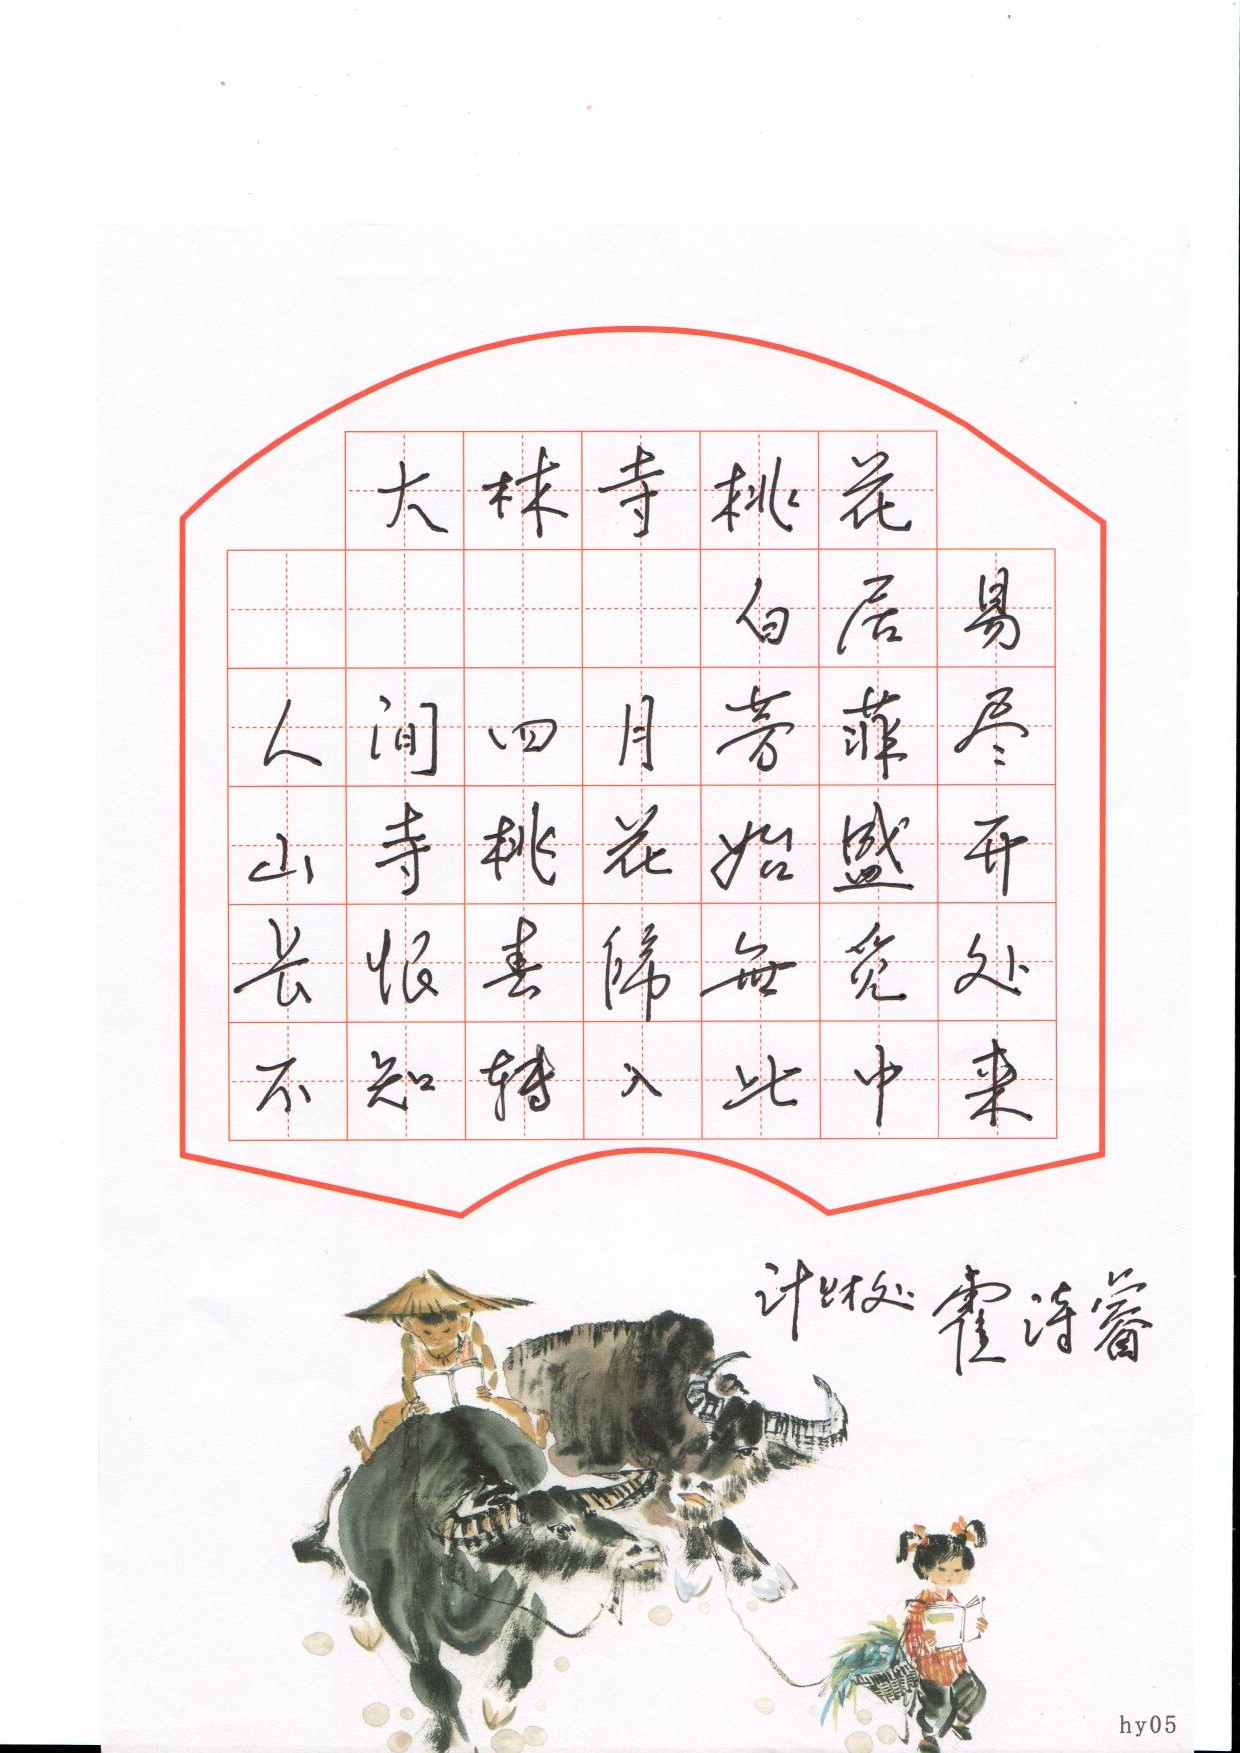 大林寺桃花
白居易
人间四月芳菲尽
山寺桃花始盛开
长恨春歸無觅处
不知转入此中来
计财处 霍诗蕾
hy05